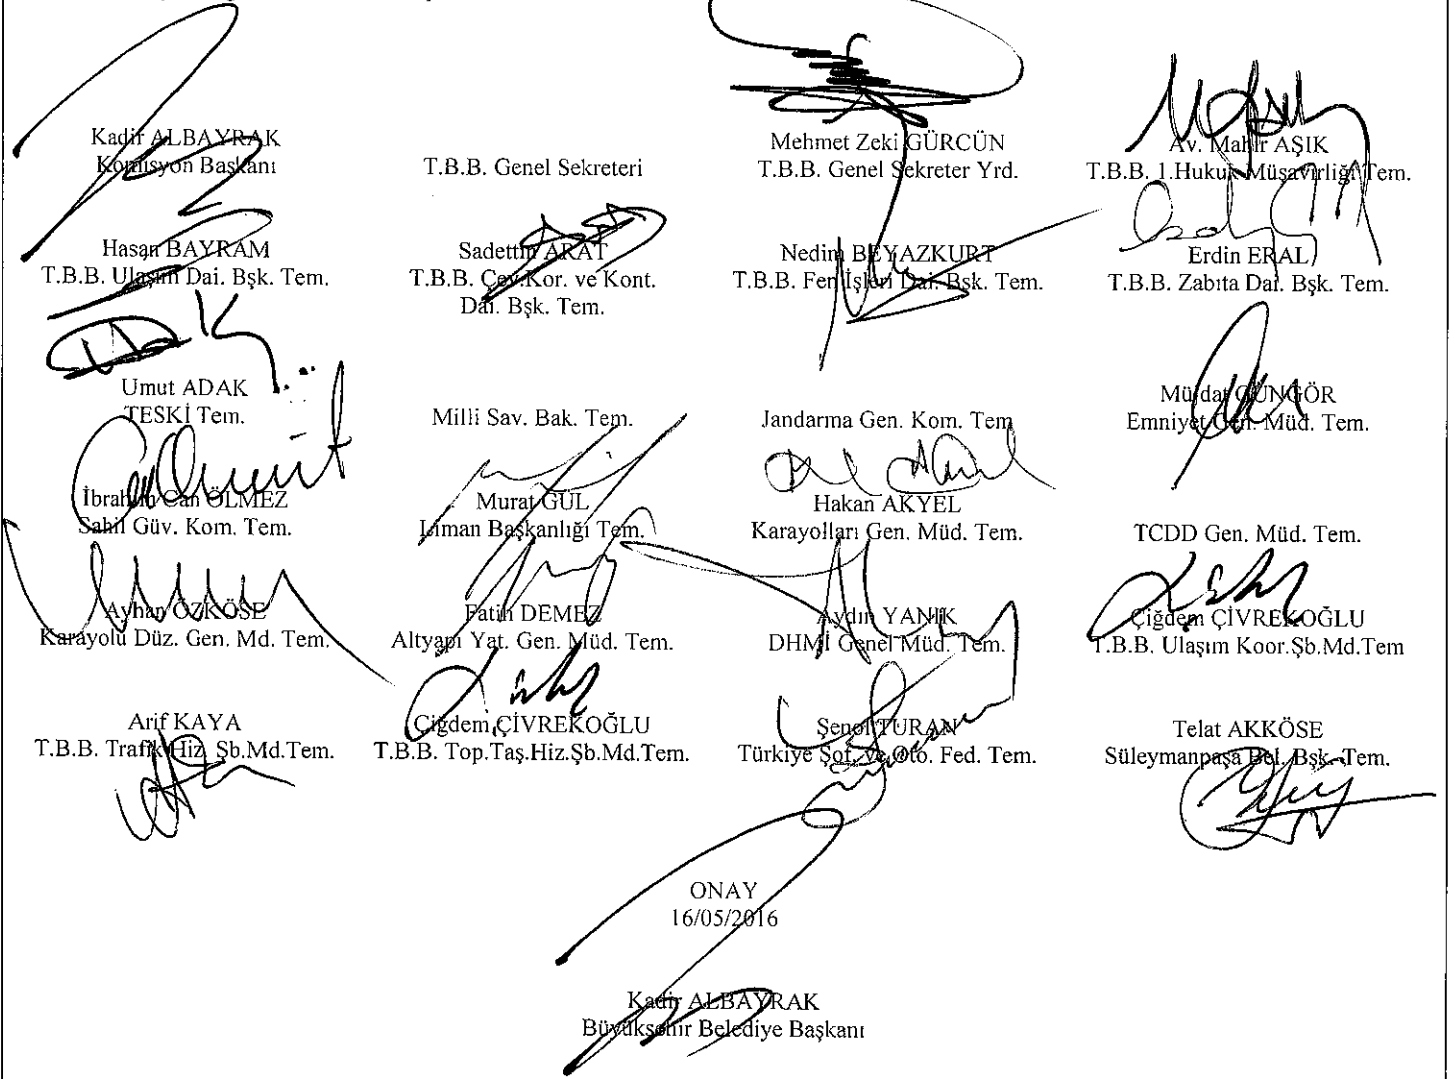 Kadir ALBAYRAK
Komisyon Başkanı
T.B.B. Genel Sekreteri
Mehmet Zeki GÜRCÜN
T.B.B. Genel Sekreter Yrd.
Av. Mahir AŞIK
T.B.B. 1.Hukuk Müşavirliği Tem.
Hasan BAYRAM
T.B.B. Ulaşım Dai. Bşk. Tem.
Sadettin ARAT
T.B.B. Çev.Kor. ve Kont.
Dai. Bşk. Tem.
Nedim BEYAZKURT
T.B.B. Fen İşleri Dai. Bşk. Tem.
Erdin ERAL
T.B.B. Zabıta Dai. Bşk. Tem.
Umut ADAK
TESKİ Tem.
Milli Sav. Bak. Tem.
Jandarma Gen. Kom. Tem
Müjdat GÜNGÖR
Emniyet Gen. Müd. Tem.
İbrahim Can ÖLMEZ
Sahil Güv. Kom. Tem.
Murat GÜL
Liman Başkanlığı Tem.
Hakan AKYEL
Karayolları Gen. Müd. Tem.
TCDD Gen. Müd. Tem.
Ayhan ÖZKÖSE
Karayolu Düz. Gen. Md. Tem.
Fatih DEMEZ
Altyapı Yat. Gen. Müd. Tem.
Aydın YANIK
DHMİ Genel Müd. Tem.
Çiğdem ÇİVREKOĞLU
T.B.B. Ulaşım Koor.Şb.Md.Tem
Arif KAYA
T.B.B. Trafik Hiz. Şb.Md.Tem.
Çiğdem ÇİVREKOĞLU
T.B.B. Top.Taş.Hiz.Şb.Md.Tem.
Şenol TURAN
Türkiye Şof. ve Oto. Fed. Tem.
Telat AKKÖSE
Süleymanpaşa Bel. Bşk. Tem.
ONAY
16/05/2016
Kadir ALBAYRAK
Büyükşehir Belediye Başkanı